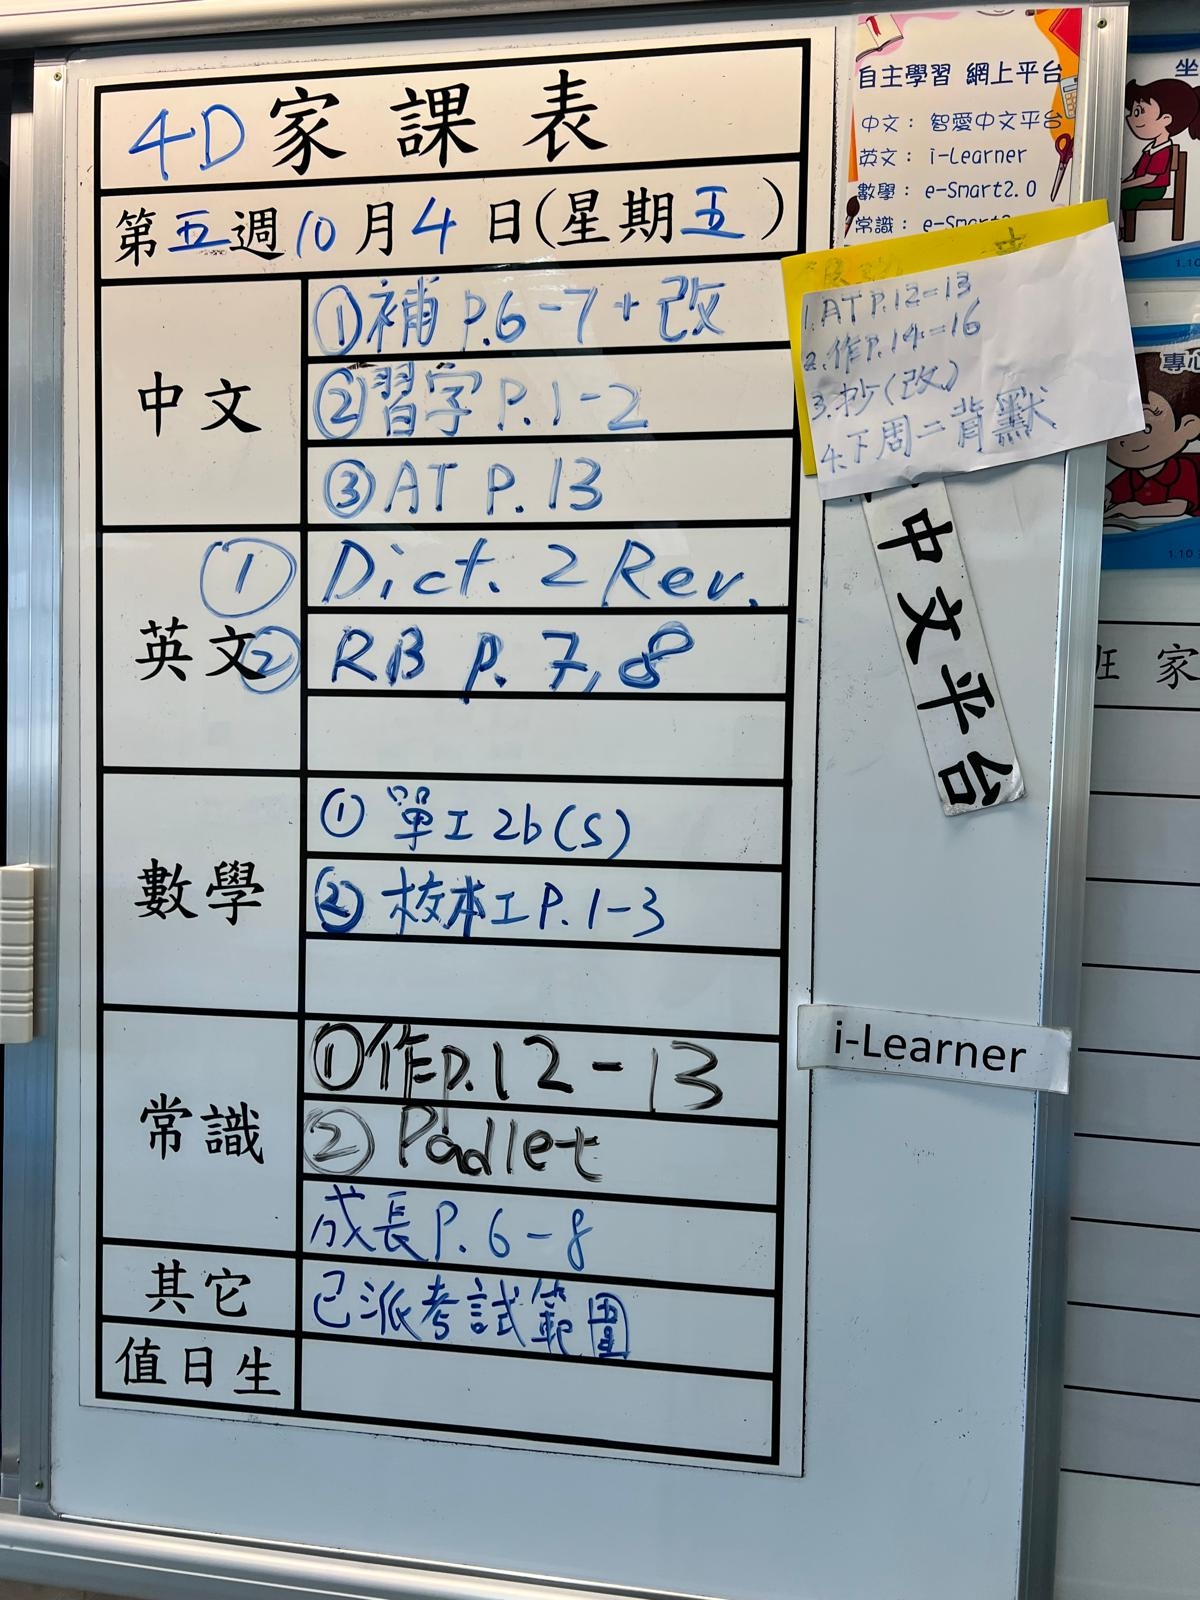 4D 家課表
第五週10月4日(星期五)
中文
①補 P.6-7+改
②習字 P.1-2
③AT P.13
英文
① Dict. 2 Rev.
② RB P. 7,8
數學
① 單工2b(S)
② 校本工P.1-3
常識
①作P.12-13
② Padlet
成長P.6-8
其它
已派考試範圍
值日生
自主學習 網上平台
中文：智愛中文平台
英文：i-Learner
數學：e-Smart2.0
常識：e-Smart2
1.AT P.12-13
2.作P.14-16
3.抄(改)
4.下周二背默
中文平台
i-Learner
坐
1.10
專心
1.10
班 家